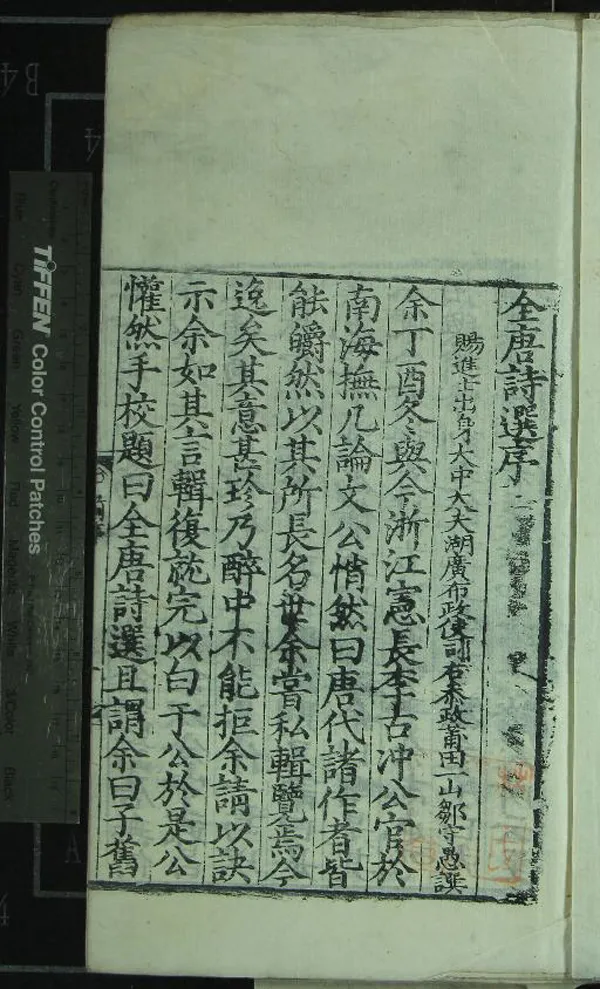 全唐詩選序
賜進士出身大中大夫湖廣布政使司右叅政莆田一山鄒守愚譔
余丁酉冬與今浙江憲長李古冲公官於
南海撫几論文公悄然曰唐代諸作者皆
能皭然以其所長名世余嘗私輯覽焉今
逸矣其意甚珍乃醉中不能拒余請以訣
示余如其言輯復就完以白于公於是公
懽然手校題曰全唐詩選且謂余曰子舊
TIFFEN Color Control Patches